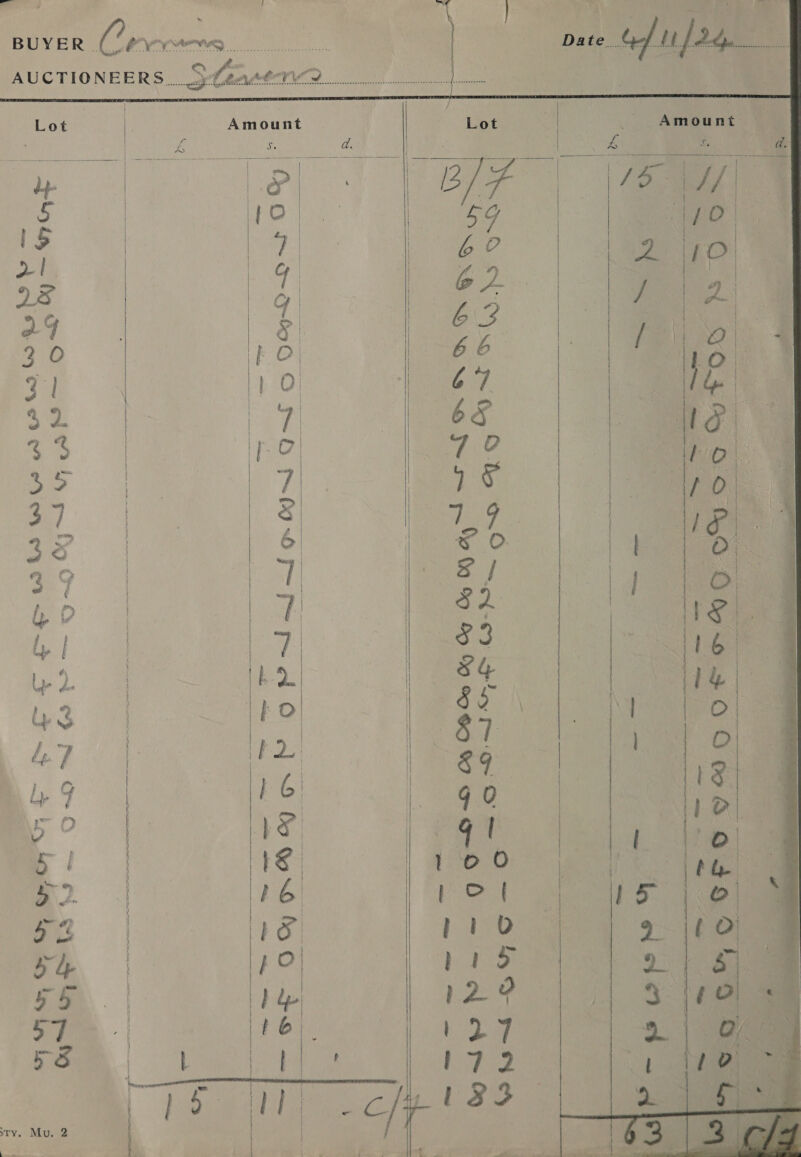 BUYER
Date 4/11/24
AUCTIONEERS Stevens
Lot Amount
£ s. d.
4 8
5 10
15 7
21 9
28 9
29 8
30 10
31 10
32 7
33 10
35 7
37 8
38 6
39 7
40 7
41 7
42 12
43 10
47 12
49 16
50 18
51 18
52 16
53 18
54 10
55 14
57 16
58 1 1
15 11 - C/F
sty. Mu. 2
Lot Amount
£ s. d.
B/F 15 11
59 10
60 2 10
62 1 2
63 1 0
66 10
67 14
68 18
70 10
78 10
79 18
80 1 0
81 1 0
82 18
83 16
84 14
85 1 0
87 1 0
89 18
90 10
91 1 0
100 14
101 15 0
110 2 10
115 2 5
120 3 10
127 2 0
172 1 10
183 2 5
63 3 C/f